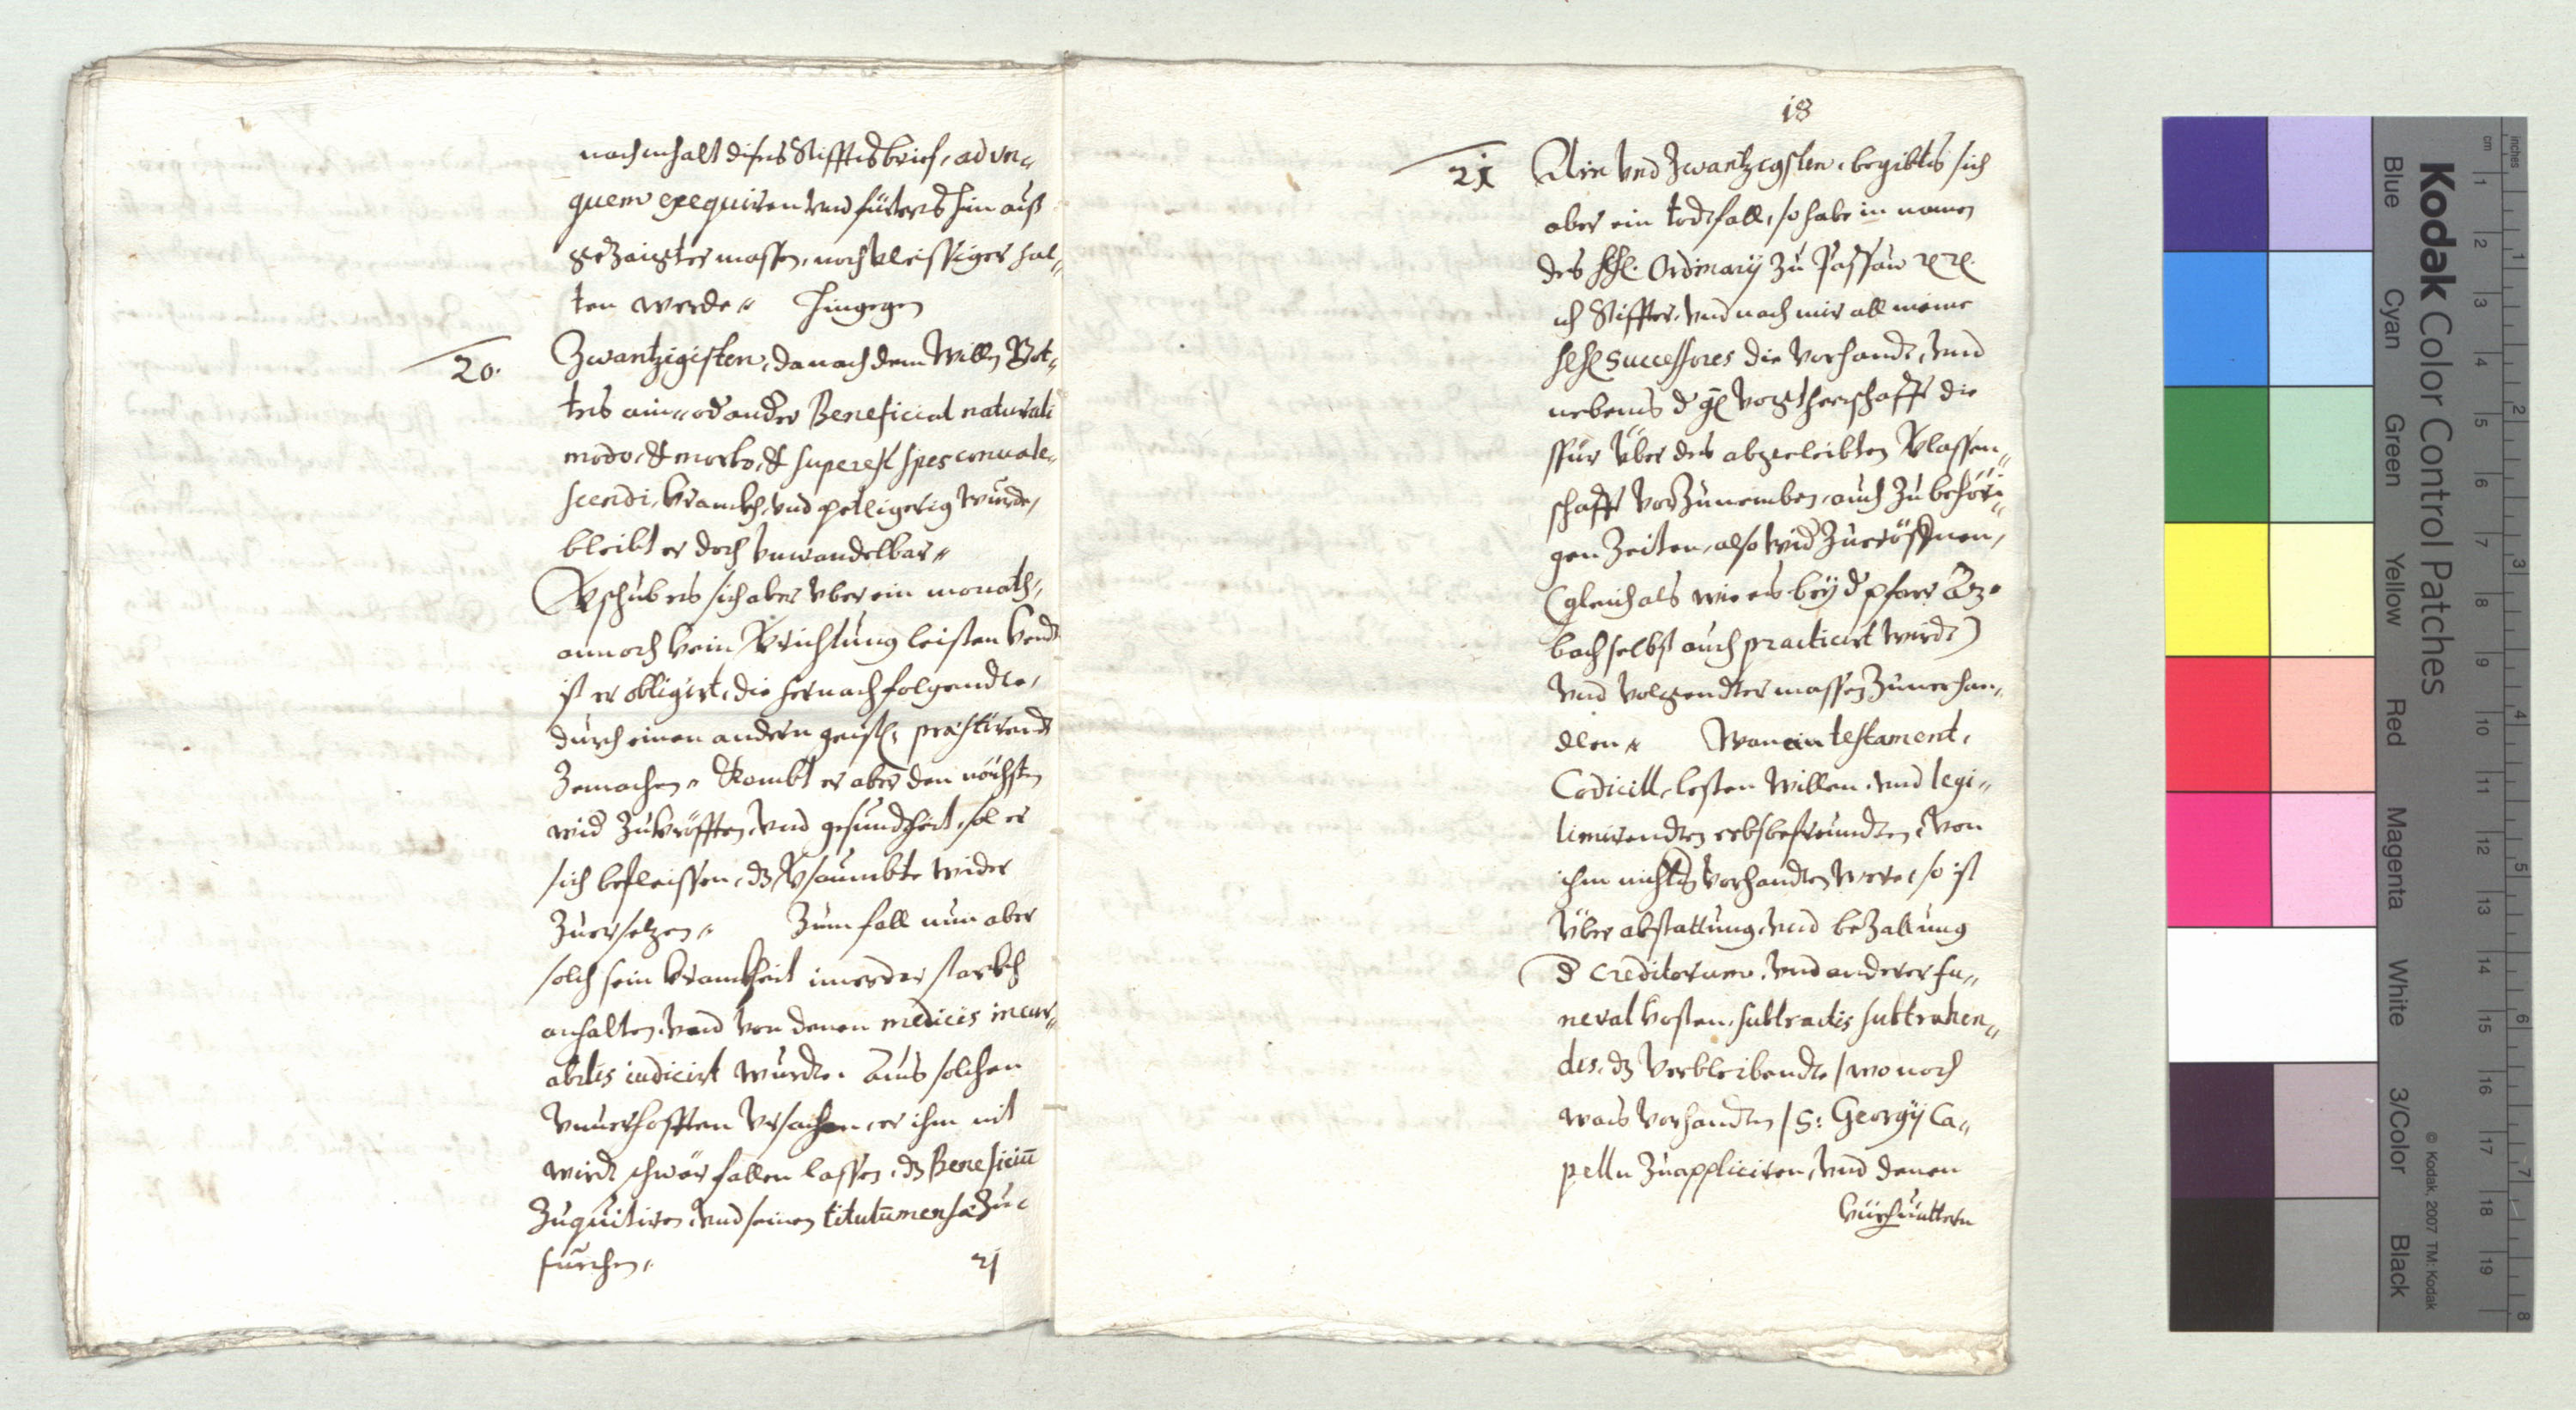 nach inhalt dises Stifftsbrief, ad vn„
quem exequiren vnd fürters hin auß
gezaigter massen, noch vleissiger hal„
ten werde„ Hingegen
20. Zwantzigisten, da nach dem Willn Got„
tes ain„ od ander Beneficiat naturali
modo, et morbo, et superest spes conuale„
scendi, kranckh, vnd petligerig wurde,
bleibt er doch vnwandelbar„
Verschub es sich aber vber ein monath,
annoch kein Verrichtung leisten kendt
ist er obligirt, die hernach folgendte,
durch einen andern geistl: praestirendt
zemachen„ Kombt er aber den nächsten
wid zu kröfften, vnd gesundheit, sol er
sich befleissen, dz Versaumbte wider
zuersetzen„ Zum fall nun aber
solch sein krankheit imerdar starckh
anhalten, vnd von denen medicis incur„
abilis iudicirt wurdte. Aus solchen
vnuerhofften vrsachen, er ihm nit
wirdt schwär fallen lassen, dz Beneficiū
zuquitiren, vnd seinen titulū mensae zu„
suechen„
21
18
21 Ain vnd zwantzigsten, begibts sich
aber ein todtfall, so habe in namen
des hhl. Ordinarij zu Passaw ꝛc ꝛc.
ich Stiffter, vnd nach mir all meine
hhl Successores die vorhandt, vnd
nebens d gl vogtherrschafft die
spür über des abgeleibten Verlassen„
schafft vorzunemben, auch zu behöri„
gen Zeiten, also wid zueröffnen,
(gleich als wie es bey d pfarr Az„
bach selbst auch practicirt wirdt)
vnd volgendter massen zuuerhan„
dlen„ Wan ein testament,
Codicill, lesten willen, vnd legi„
timirendten erbsbefreundten, von
ihm nichts vorhandten were, so ist
über abstattung, vnd bezallung
d Creditorum, vnd anderer fu„
neral kosten, subtractis subtrahen„
dis, dz verbleibendte / wo noch
was vorhandten / S: Georgij Ca„
pelln zuappliciren, vnd denen